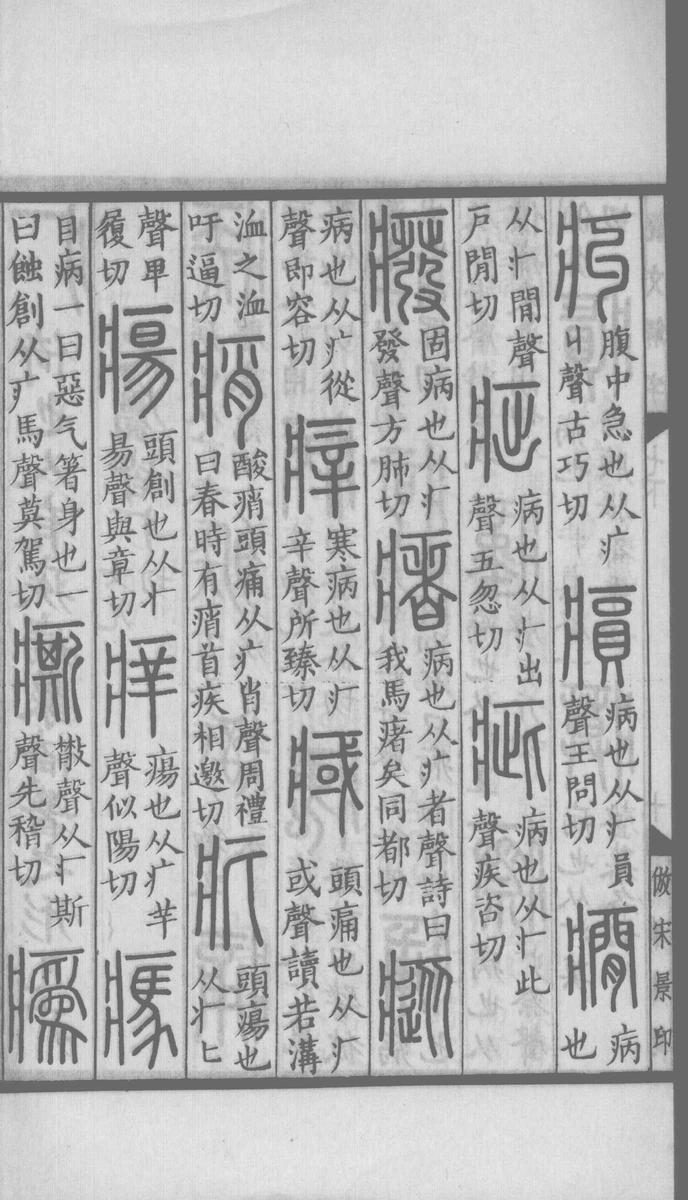 㽱腹中急也从疒丩聲古巧切𤸫病也从疒員聲王問切癇病也
从疒閒聲戸閒切㽾病也从疒出聲五忽切疵病也从疒此聲疾咨切
癈固病也从疒發聲方肺切瘏病也从疒者聲詩曰我馬瘏矣同都切瘲
病也从疒從聲即容切㾕寒病也从疒辛聲所臻切頭痛也从疒或聲讀若溝
洫之洫吁逼切痟酸痟頭痛从疒肖聲周禮曰春時有痟首疾相邀切疕頭瘍也从疒匕
聲卑履切瘍頭創也从疒昜聲與章切痒瘍也从疒羊聲似陽切㾺
目病一曰惡气箸身也一曰蝕創从疒馬聲莫駕切𤺊㪔聲从疒斯聲先稽切
倣宋景印